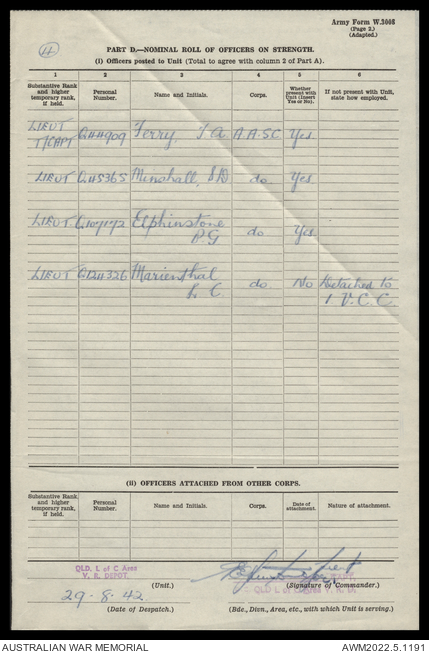 Army Form W.3008
(Page 2.)
(Adapted.)
PART D.—NOMINAL ROLL OF OFFICERS ON STRENGTH.
(i) Officers posted to Unit (Total to agree with column 2 of Part A).
1 2 3 4 5 6
Substantive Rank and higher temporary rank, if held. Personal Number. Name and Initials. Corps. Whether present with Unit (Insert Yes or No). If not present with Unit, state how employed.
LIEUT
T/CAPT Q44909 Terry, T A. A A.S.C Yes
LIEUT Q45365 Minshall, S D do. Yes
LIEUT Q107172 Elphinstone
P.G do Yes
LIEUT Q124326 Marienthal
L C. do. No Detached to
1 V.C.C.
(ii) OFFICERS ATTACHED FROM OTHER CORPS.
Substantive Rank and higher temporary rank, if held. Personal Number. Name and Initials. Corps. Date of attachment. Nature of attachment.
QLD. L of C Area
V. R. DEPOT.
(Unit.) (Signature of Commander.)
29-8-42
(Date of Despatch.) (Bde., Divn., Area, etc., with which Unit is serving.)
AUSTRALIAN WAR MEMORIAL AWM2022.5.1191